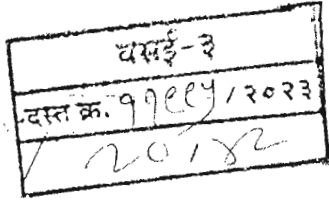 वसई-३
दस्त क्र. ११९९५ / २०२३
२०/४२